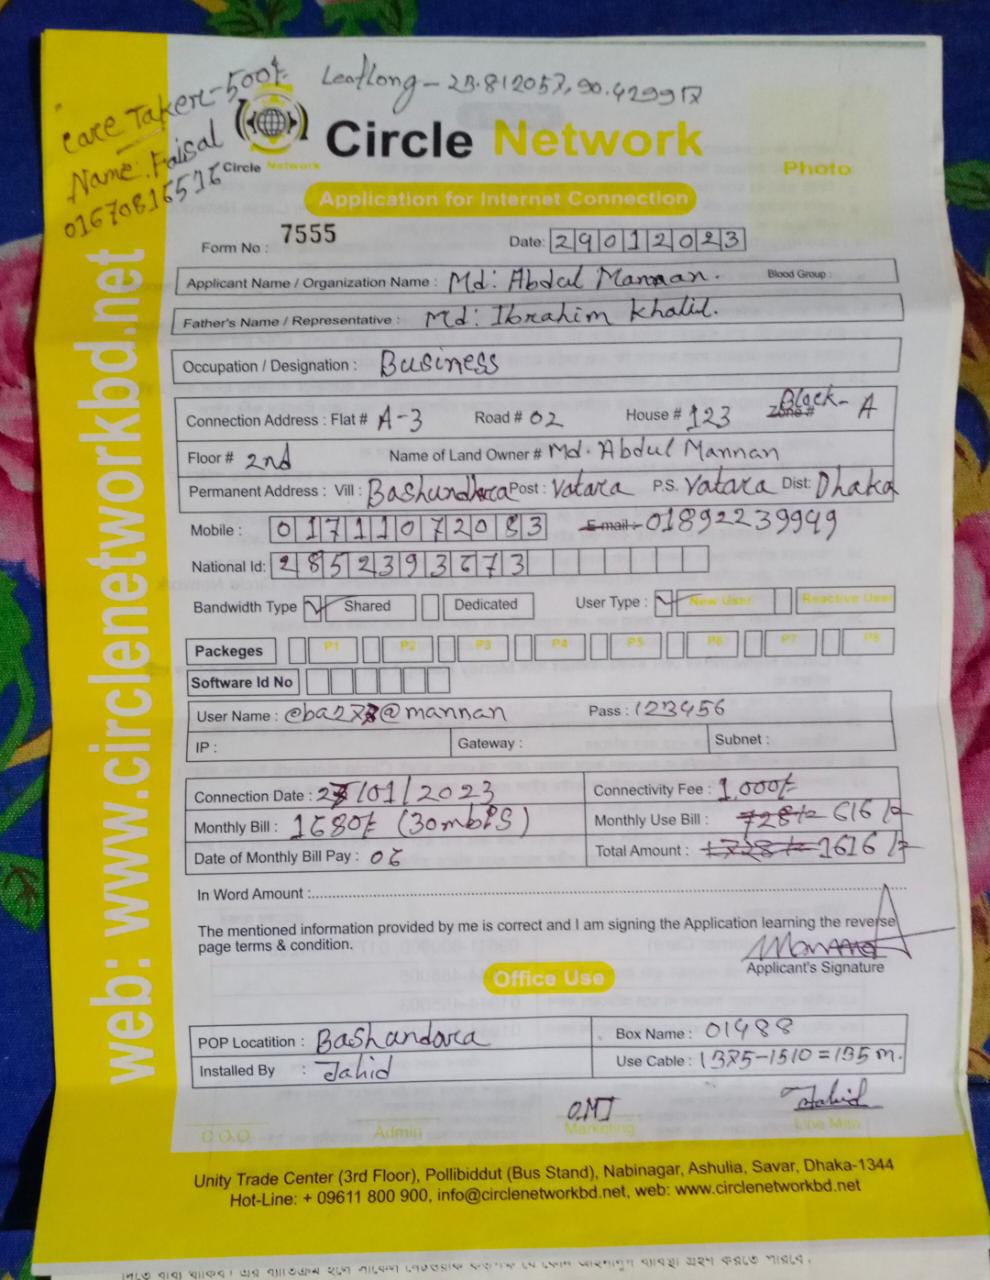 Care Taker-500/-
Name: Faisal
01670816516
Leaflong - 23.812057, 90.429917
Circle Network
Circle Network
Photo
Application for Internet Connection
Form No : 7555
Date: 29012023
Applicant Name / Organization Name : Md: Abdul Mannan. Blood Group :
Father's Name / Representative : Md: Ibrahim Khalil.
Occupation / Designation : Business
Connection Address : Flat # A-3 Road # 02 House # 123 Zone # Block- A
Floor # 2nd Name of Land Owner # Md. Abdul Mannan
Permanent Address : Vill : Bashundhara Post : Vatara P.S. Vatara Dist: Dhaka
Mobile : 01711072083 E-mail : 01892239949
National Id: 2852393673
Bandwidth Type Shared Dedicated User Type : New User Reactive User
Packeges P1 P2 P3 P4 P5 P6 P7 P8
Software Id No
User Name : @mannan Pass : 123456
IP : Gateway : Subnet :
Connection Date : /01/2023 Connectivity Fee : 1,000/-
Monthly Bill : 1680/- (30mbPS) Monthly Use Bill : 728/- 616/-
Date of Monthly Bill Pay : 06 Total Amount : 1728/- 1616/-
In Word Amount :
The mentioned information provided by me is correct and I am signing the Application learning the reverse
page terms & condition.
Applicant's Signature
Office Use
POP Locatition : Bashandara Box Name : 01488
Installed By : Jahid Use Cable : 1375-1510 = 135 m.
O.MI Jahid
C.O.O Admin Marketing Line Man
Unity Trade Center (3rd Floor), Pollibiddut (Bus Stand), Nabinagar, Ashulia, Savar, Dhaka-1344
Hot-Line: + 09611 800 900, info@circlenetworkbd.net, web: www.circlenetworkbd.net
web: www.circlenetworkbd.net